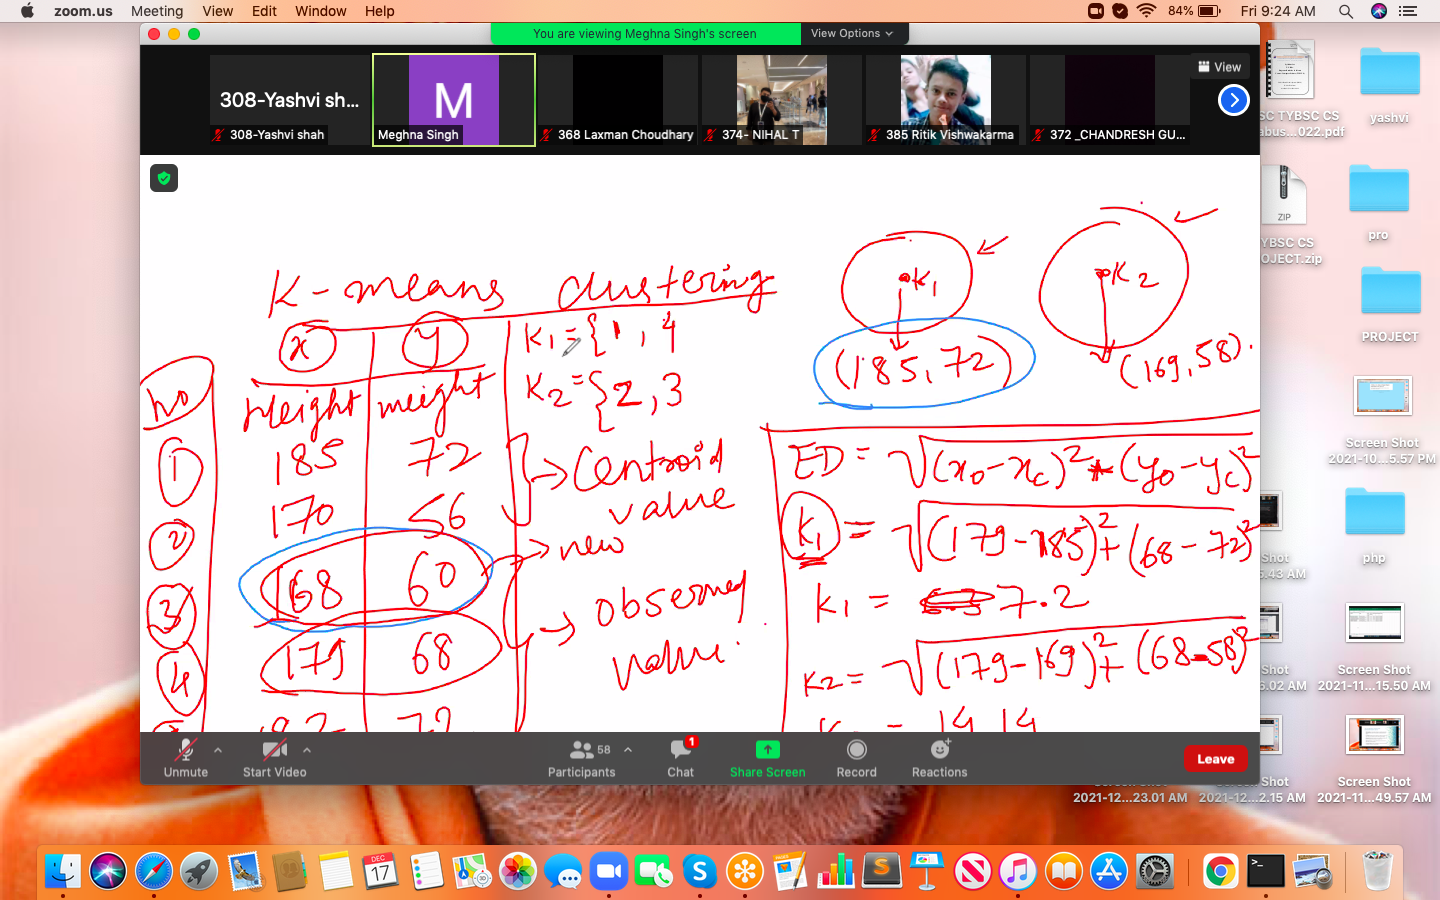 zoom.us Meeting View Edit Window Help 84% Fri 9:24 AM
You are viewing Meghna Singh's screen View Options
308-Yashvi sh...
M
View
308-Yashvi shah
Meghna Singh
368 Laxman Choudhary
374- NIHAL T
385 Ritik Vishwakarma
372 _CHANDRESH GU...
K-means clustering
x y
No Height weight
1 185 72
2 170 56
3 168 60
4 179 68
K1={1, 4
K2={2, 3
→ Centroid
value
→ new
→ observed
value.
K1
K2
(185,72)
(169,58).
ED = √(x0-xc)2+(y0-yc)2
K1 = √(179-185)2+(68-72)2
K1 = 7.2
K2= √(179-169)2+(68-58)2
14.14
Unmute
Start Video
58
Participants
1
Chat
Share Screen
Record
Reactions
Leave
SC TYBSC CS
abus...022.pdf
yashvi
ZIP
YBSC CS
OJECT.zip
pro
PROJECT
Screen Shot
2021-10...5.57 PM
Shot
5.43 AM
php
Shot
6.02 AM
Screen Shot
2021-11...15.50 AM
2021-12...23.01 AM
Shot
2021-12...2.15 AM
Screen Shot
2021-11...49.57 AM
DEC
17